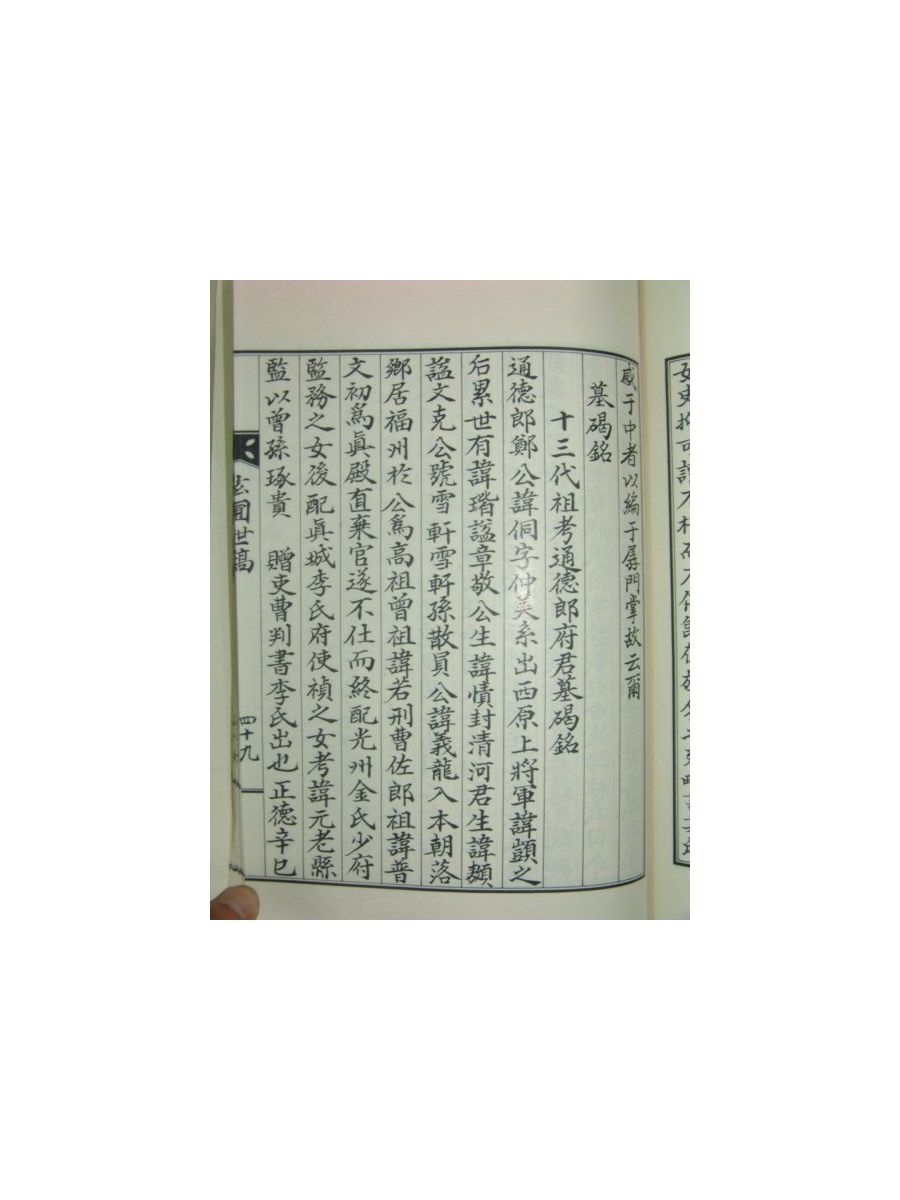 感于中者以編于孱門掌故云爾
墓碣銘
十三代祖考通德郎府君墓碣銘
通德郎鄭公諱侗字仲美系出西原上將軍諱顗之
后累世有諱瑎諡章敬公生諱㥽封清河君生諱䫨
諡文克公號雪軒雪軒孫散員公諱義龍入本朝落
鄉居福州於公爲高祖曾祖諱若刑曹佐郎祖諱普
文初爲眞殿直棄官遂不仕而終配光州金氏少府
監務之女後配眞城李氏府使禎之女考諱元老縣
監以曾孫琢貴 贈吏曹判書李氏出也正德辛巳
玄圃世稿
四十九